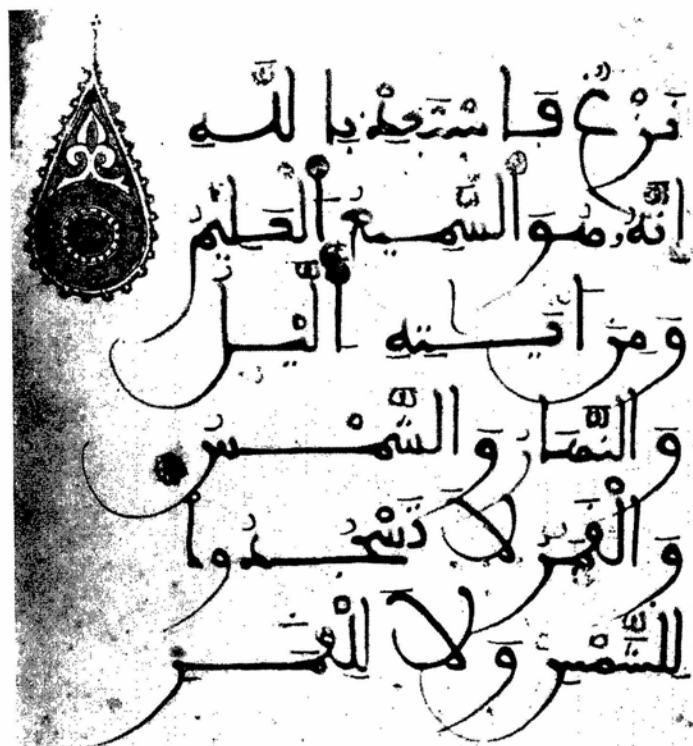 نَزْغٌ فَاسْتَعِذْ بِاللَّهِ
إِنَّهُ هُوَ السَّمِيعُ الْعَلِيمُ
وَمِنْ آيَٰتِهِ الَّيْلُ
وَالنَّهَارُ وَالشَّمْسُ
وَالْقَمَرُ لَا تَسْجُدُوا
لِلشَّمْسِ وَلَا لِلْقَمَرِ